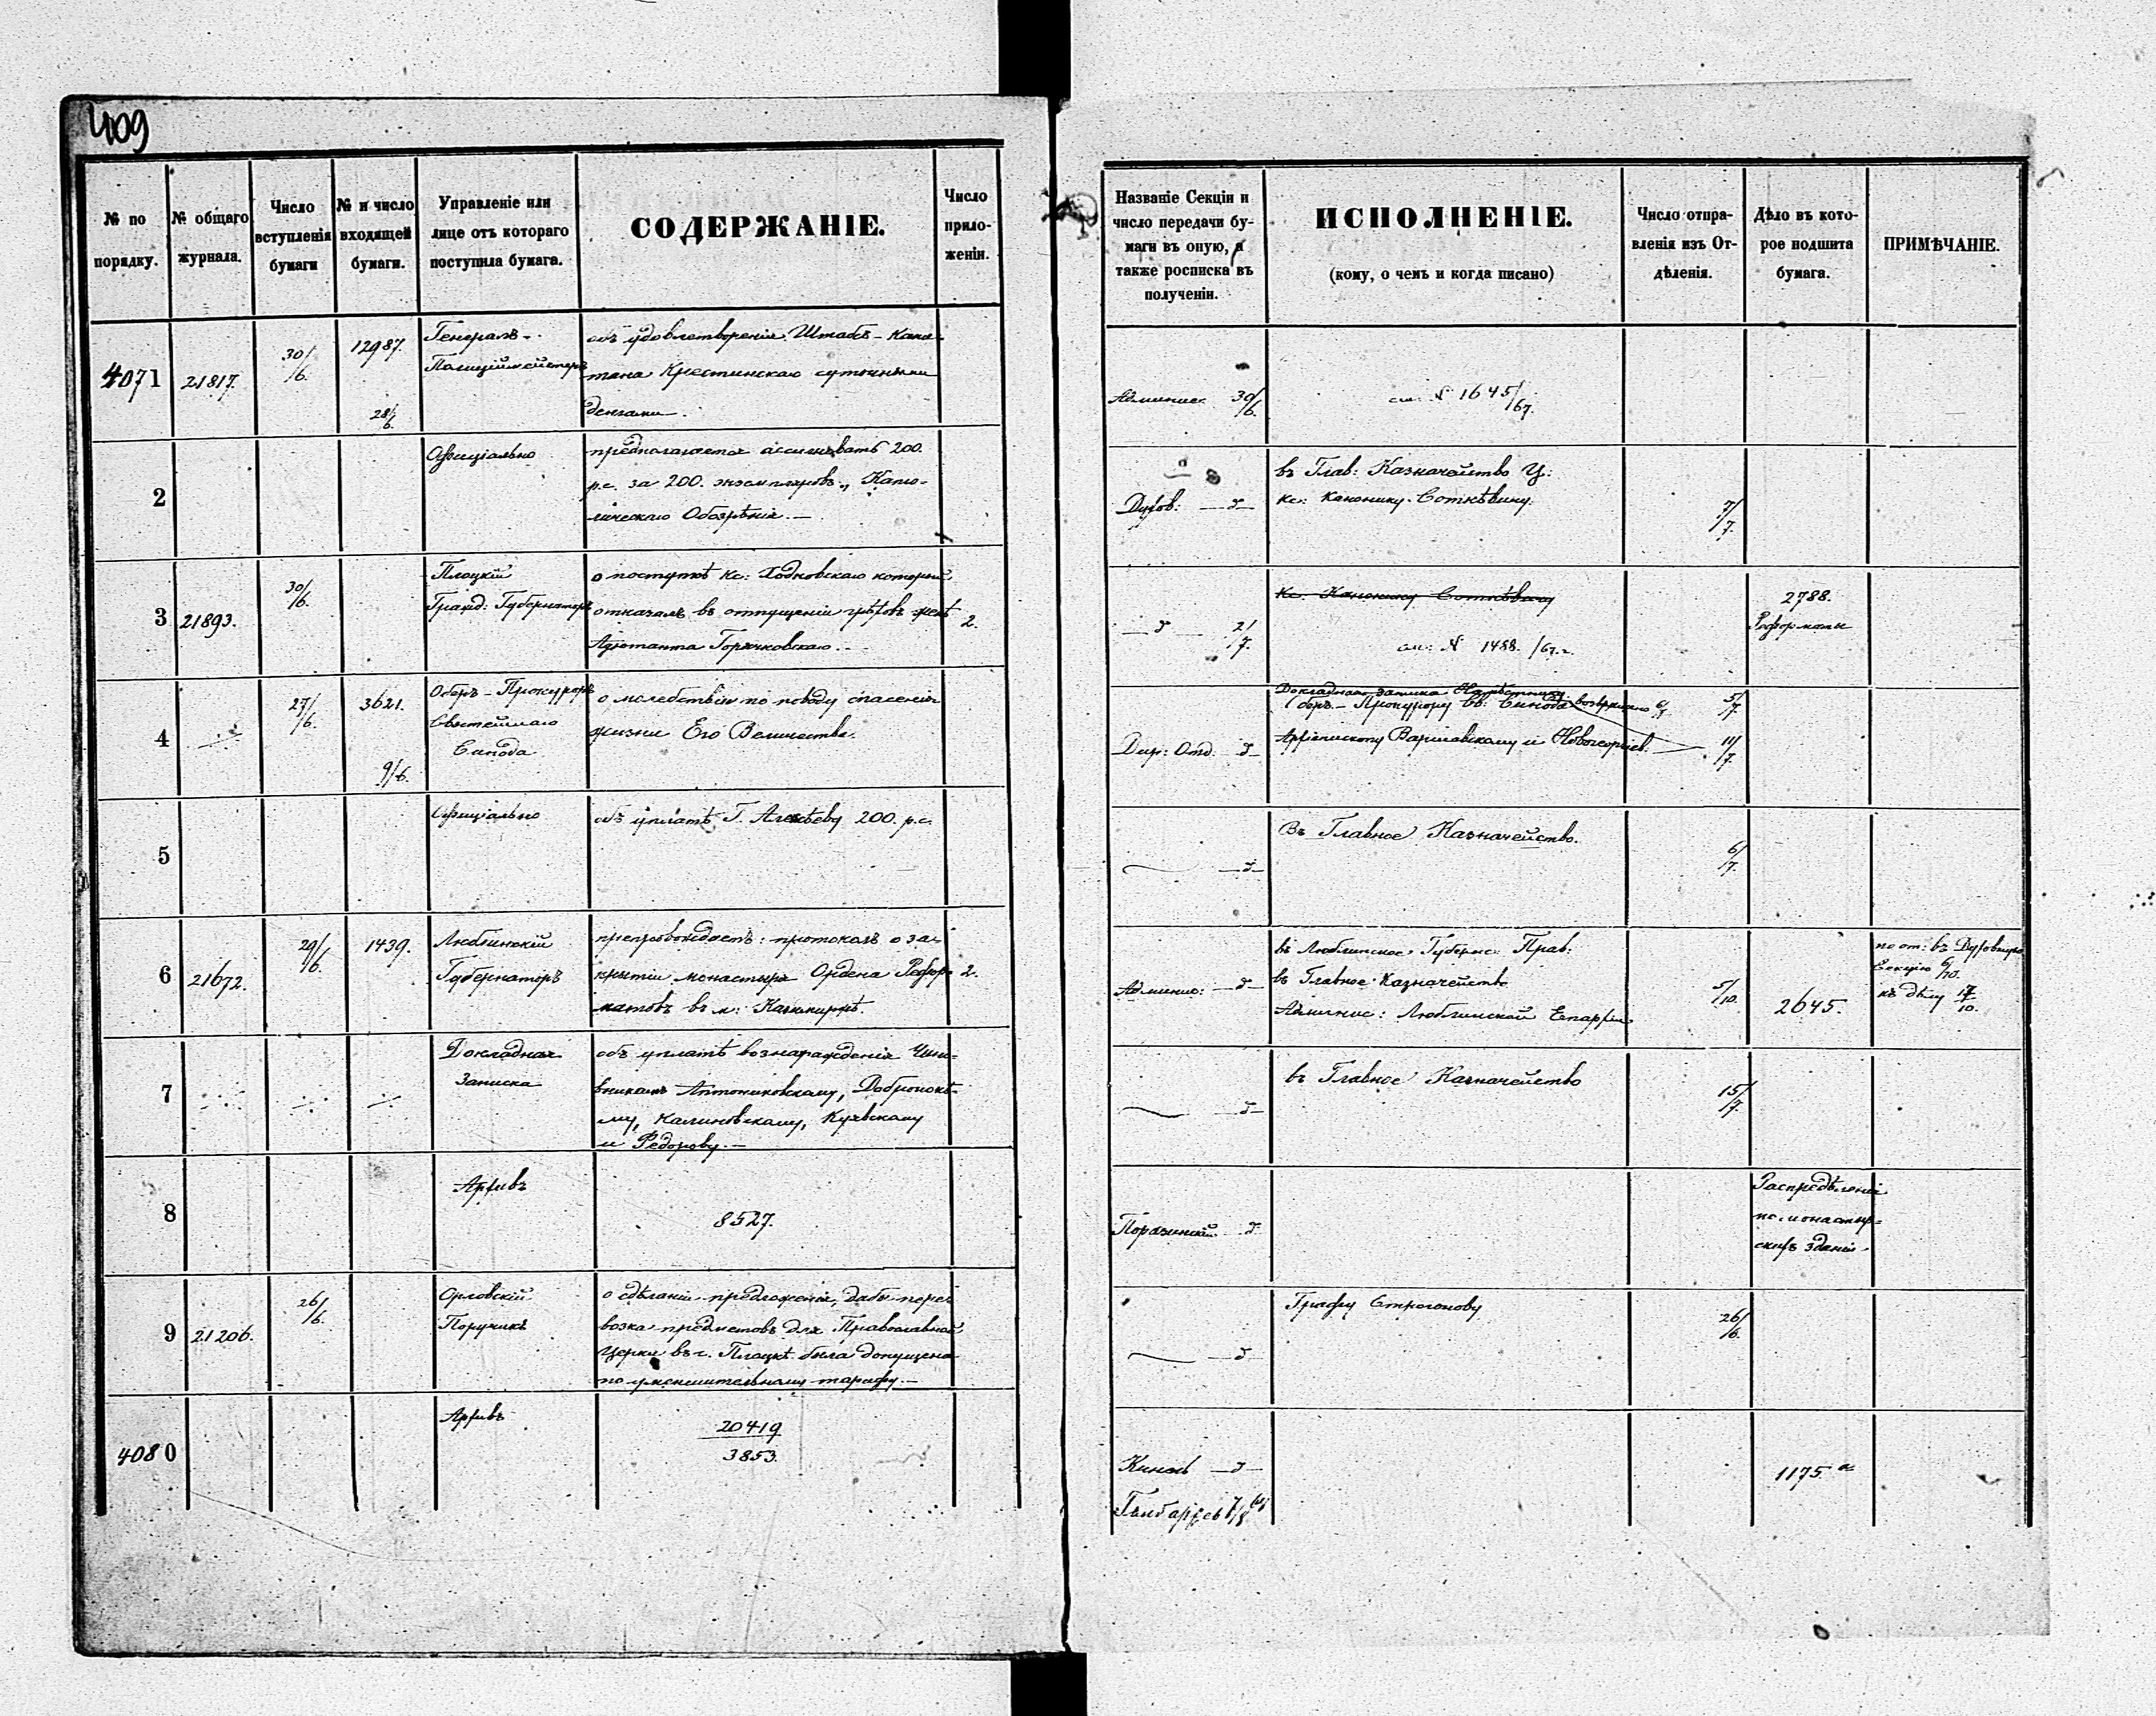 409
№ по порядку.
№ общаго журнала.
Число вступленія бумаги
№ и число входящей бумаги.
Управленіе или лице отъ котораго поступила бумага.
СОДЕРЖАНІЕ.
Число приложеніи.
Названіе Секціи и число передачи бумаги въ оную, а также росписка въ полученіи.
ИСПОЛНЕНІЕ.
(кому, о чемъ и когда писано)
Число отправленія изъ Отдѣленія.
Дѣло въ которое подшита бумага.
ПРИМѢЧАНІЕ.
4071
21817.
30/6.
12987.
28/6.
Генералъ-
Полицій мейстеръ
объ удовлетвореніи Штабсъ-Капи-
тана Крестинскаго суточными
деньгами.
Админис. 30/6.
см. № 1645/67.
2
Официально
предполагается ассигновать 200.
р.с. за 200. экземпляровъ „Като-
лическаго Обозрѣнія.—
Духов: —д—
въ Глав: Казначейство Ц:
Кс: Канонику Соткѣвичу.
7/7.
3
21893.
30/6.
Плоцкій
Гражд: Губернаторъ
о поступкѣ Кс: Ходковскаго который
отказалъ въ отпущеніи грѣховъ женѣ
Адютанта Горячковскаго.
2.
—д— 21/7.
Кс. Канонику Соткѣвичу
см: № 1488. /67.г.
2788.
Реформаты
4
27/6.
3621.
9/6.
Оберъ-Прокуроръ
Святейшаго
Синода
о молебствіи по поводу спасенія
жизни Его Величества.
Дир: Отд. д—
Докладная записка Намѣстнику
Оберъ-Прокурору Св: Синода возвращено 6/7
Архіепископу Варшавскому и Новогеоргіев.
5/7.
11/7.
5
Официально
объ уплатѣ Г. Алексѣеву 200. р.с.
—д—
Въ Главное Казначейство.
6/7.
6
21672.
29/6.
1439.
Люблинскій
Губернаторъ
препровождаетъ: протоколъ о за-
крытіи монастыря Ордена Рефор-
матовъ въ м: Казимиржѣ.
2.
Админис: —д—
въ Люблинское Губернс: Прав:
въ Главное Казначейство
Админис: Люблинской Епархіи
5/10.
2645.
по от: въ Духовную
Секцію 6/10.
къ дѣлу 17/10.
7
Докладная
Записка
объ уплатѣ вознагражденія Чино-
вникамъ Антониковскому,
му, Калиновскому,
и Федорову.—
—д—
въ Главное Казначейство
15/7.
8
Архивъ
8527.
Поразинскій д
Распредѣленіе
по. монастыр-
скихъ зданій
9
21206.
26/6.
Орловскій
Поручикъ
о сдѣланіи предложенія, дабы пере-
возка предметовъ для Православной
Церкви въ г. Плоцкѣ была допущена
по уменшительному тарифу.—
—д—
Графу Строгонову
26/6.
4080
Архивъ
20419
3853.
—д—
1175.а